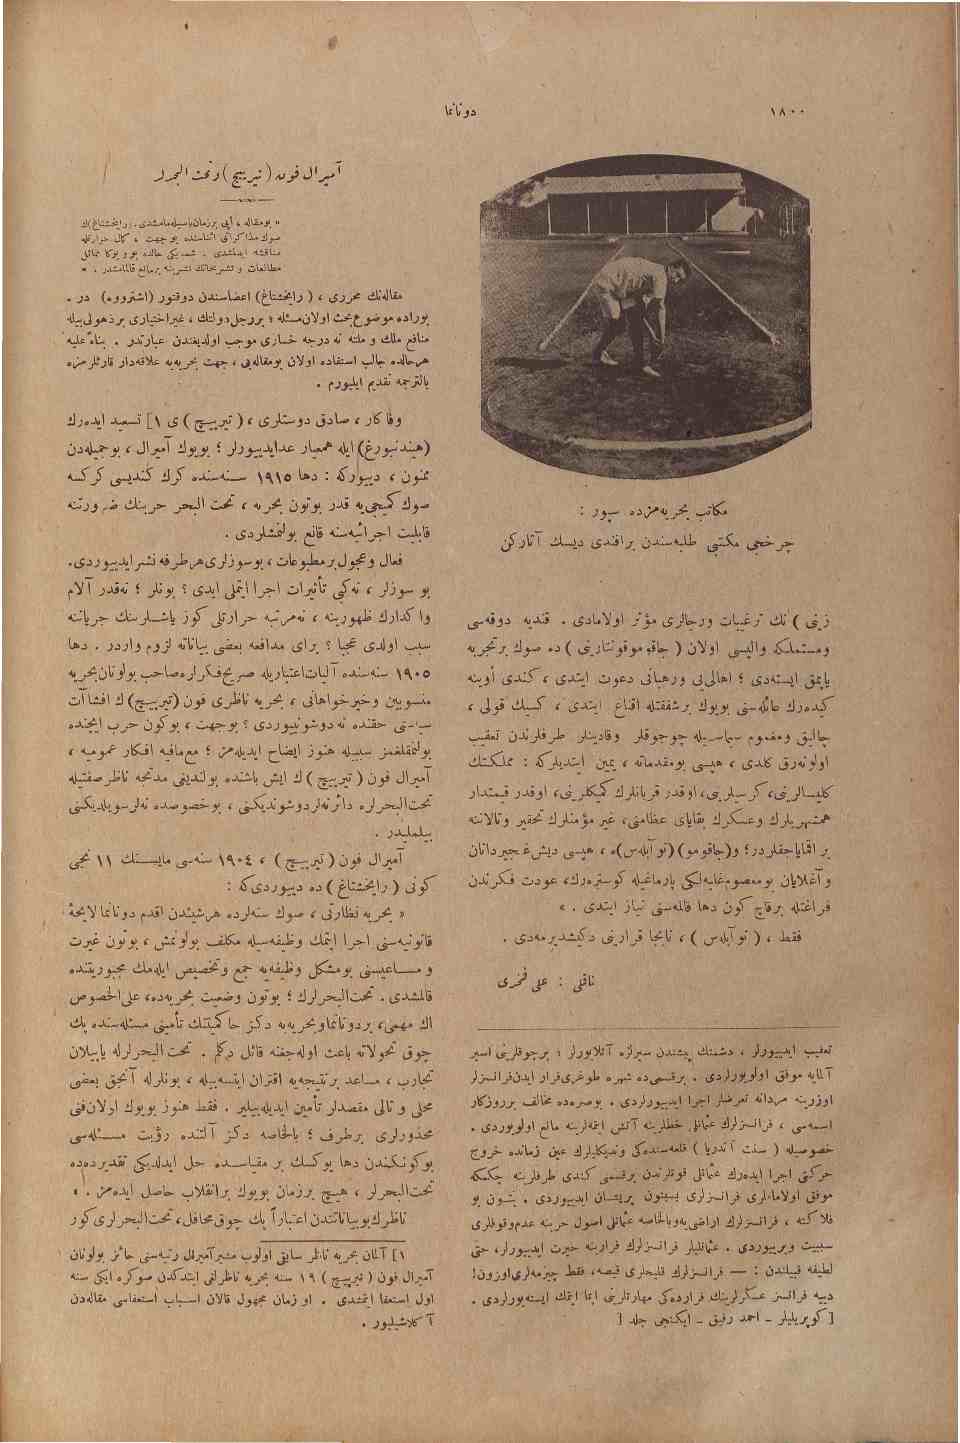 ١٨٠٠
دونانما
مكاتب بحريه‌مزده سپور :
چرخجی مكتبی طلبه‌سندن برافندی دیسك آتاركن
زینی ) نك ترغیبات ورجالری مؤثر اولامادی . قندیه دوقه‌سی
ومستملكه والیسی اولان ( جاقوموقونتارینی ) ده صوك برتجربه
یاپمق ایسته‌دی ؛ اهالی‌یی ورهبانی دعوت ایتدی ، كندی أوینه
كیده‌رك عائله‌سنی بویوك برشفقتله اقناع ایتدی ، كسیك قولی ،
چالیق ومغموم سیماسیله چوجوقلر وقادینلر طرفلرندن تعقیب
اولونه‌رق كلدی ، هپسی بومقدماته ، یمین ایتدیلركه : مملكتك
كلیسالرینی، كرسیلرینی، اوقدر قربانلرك كمیكلرینی، اوقدر قیمتدار
همشهریلرك وعسكرك بقایای عظامنی، غیر مؤمنلرك تحقیر وتالاننه
بر اقمایاجقلردر؛ و(جاقومو) (توآبله‌س)ه ، هپسی دیش غجیرداتان
وآغلایان بومعصوم‌غلبه‌لكی پارماغیله كوستره‌رك، عودت فكرندن
فراغتله برقاچ كون دها قالمه‌سنی نیاز ایتدی . »
فقط ، ( توآبله‌س ) ، نابجا قرارینی دكیشدیرمه‌دی .
ناقلی : علی فخری
تعقیب ایدییورلر ، دشمنك پیشندن سپرلره آتلایورلر ؛ برچوقلرینی اسیر
آلمایه موفق اولویورلردی . برقسمی‌ده شهره طوغری‌فرار ایدن‌فرانسزلر
اوزرینه مردانه تعرضلر اجرا ایدییورلردی . بوصره‌ده مخالف برروزكار
اسمه‌سی ، فرانسزلرك عثمانلی خطلرینه آتش ایتمه‌لرینه مانع اولویوردی .
خصوصیله ( سنت آندریا ) قلعه‌سنده‌كی وندیكلیلرك عین زمانده خروج
حركتی اجرا ایده‌رك عثمانلی قوتلرندن برقسمی كندی طرفلرینه چكمكه
موفق اولامامه‌لری فرانسزلری بسبتون پریشان ایدییوردی . بتون بو
فلاكته ، فرانسزلرك اراضی‌یه‌وبالخاصه عثمانلی اصول حربنه عدم‌وقوفلری
سببیت ویرییوردی . عثمانلیلر فرانسزلرك فرارینه حیرت ایدییورلر، حتی
لطیفه قبیلندن : — فرانسزلرك قلیجلری قیصه، فقط چیزمه‌لری‌اوزون!
دییه فرانسز عسكرلرینك فرارده‌كی مهارتلرینی ایما ایتمك ایسته‌یورلردی .
[ كوپریلیلر ـ احمد رفیق ـ ایكنجی جلد ]
آمیرال فون ( تیرپیچ ) وتحت البحرلر
« بومقاله ، أپی برزمان‌یاسیله‌مامشدی. (رایخشتاغ)ك
صوك مذاكراتی اثناسنده بو جهت ، كمال حرارتله
مناقشه ایدلمشدی . شمدیكی حالده بو وبوكا مماثل
مطالعات و تشریحاتك نشرینه برمانع قالمامشدر . »
مقاله‌نك محرری ، ( رایخشتاغ) اعضاسندن دوقتور (اشترووه) در .
بوراده موضوع‌بحث اولان‌مسئله ؛ بررجل‌دولتك ، غیراختیاری برذهولی‌یله
منافع ملك و ملته نه درجه خساری موجب اولدیغندن عبارتدر . بناءً علیه
هرحالده جالب استفاده اولان بومقاله‌یی ، جهت بحریه‌یه علاقه‌دار قارئلرمزه
بالترجمه تقدیم ایلیورم .
وفاكار ، صادق دوستلری ، ( تیرپیچ ) ی [١ تسعید ایده‌رك
(هیندنبورغ) ایله همعیار عدایدییورلر ؛ بویوك آمیرال ، بوجمیله‌دن
ممنون ، دییوركه : دها ١٩١٥ سنه‌سنده كرك كندیسی كركسه
صوك كمیجی‌یه قدر بوتون بحریه ، تحت البحر حربنك ضرورتنه
قابلیت اجرائیه‌سنه قانع بولنمشلردی .
فعال وعجول‌برمطبوعات ، بوسوزلری‌هرطرفه نشرایدییوردی.
بو سوزلر ، نه‌كبی تأثیرات اجرا ایتملی ایدی ؟ بونلر ؛ نه‌قدر آلام
واكدارك ظهورینه ، نه‌مرتبه حرارتلی كوز یاشلرینك جریاننه
سبب اولدی عجبا ؟ برای مدافعه بعضی بیاناته لزوم واردر . دها
١٩٠٥ سنه‌سنده آلیات‌اعتباریله صریح‌فكرلره‌صاحب بولونان‌بحریه
منسوبین وخیرخواهانی ، بحریه ناظری فون (تیرپیچ)ك افشاآت
سیاستی حقنده نه‌دوشونییوردی ؟ بوجهت ، بوكون حرب ایچنده
بولنمقلغمز سببیله هنوز ایضاح ایدیله‌مز ؛ مع‌مافیه افكار عمومیه ،
آمیرال فون ( تیرپیچ ) ك ایش باشنده بولندیغی مدتجه ناظرصفتیله
تحت‌البحرلره دائرنه‌لردوشوندیكنی ، بوخصوصده نه‌لرسویلدیكنی
بیلملیدر .
آمیرال فون ( تیرپیچ ) ، ١٩٠٤ سنه‌سی مایسنك ١١ نجی
كونی ( رایخشتاغ ) ده دییوردی‌كه :
« بحریه نظارتی ، صوك سنه‌لرده هرشیئدن اقدم دونانما لایحهٔ
قانونیه‌سنی اجرا ایتمك وظیفه‌سیله مكلف بولونمش ، بوتون غیرت
و مساعیسنی بومشكل وظیفه‌یه جمع وتخصیص ایله‌مك مجبوریتنده
قالمشدی . تحت‌البحرلرك ؛ بوتون وضعیت بحریه‌ده، علی‌الخصوص
اك مهمی، بردونانماوبحریه‌یه دكز حاكمیتنك تأمینی مسئله‌سنده پك
چوق تحولاته باعث اوله‌جغنه قائل دكلم . تحت‌البحرلرله یاپیلان
تجارب ، مساعد برنتیجه‌یه اقتران ایتسه‌بیله ، بونلرله آنجق بعضی
محلی و تالی مقصدلر تأمین ایدیله‌بیلیر . فقط هنوز بویوك اولان‌فنی
محذورلری برطرف ؛ بالخاصه دكز آلتنده رؤیت مسئله‌سی
بوكونكیندن دها یوكسك بر مقیاسده حل ایدلدیكی تقدیرده‌ده
تحت‌البحرلر ، هیچ برزمان بویوك برانقلاب حاصل ایده‌مز . »
ناظرك‌بوبیاناتندن اعتباراً پك چوق‌محافل، تحت‌البحرلری‌كور
١] آلمان بحریه ناظر سابقی اولوب مشیرآمیرال رتبه‌سنی حائز بولونان
آمیرال فون ( تیرپیچ ) ١٩ سنه بحریه ناظرلغی ایتدكدن صوكره ایكی سنه
اول استعفا ایتمشدی . او زمان مجهول قالان اسباب استعفاسی مقاله‌دن
آ كلاشیلیور .